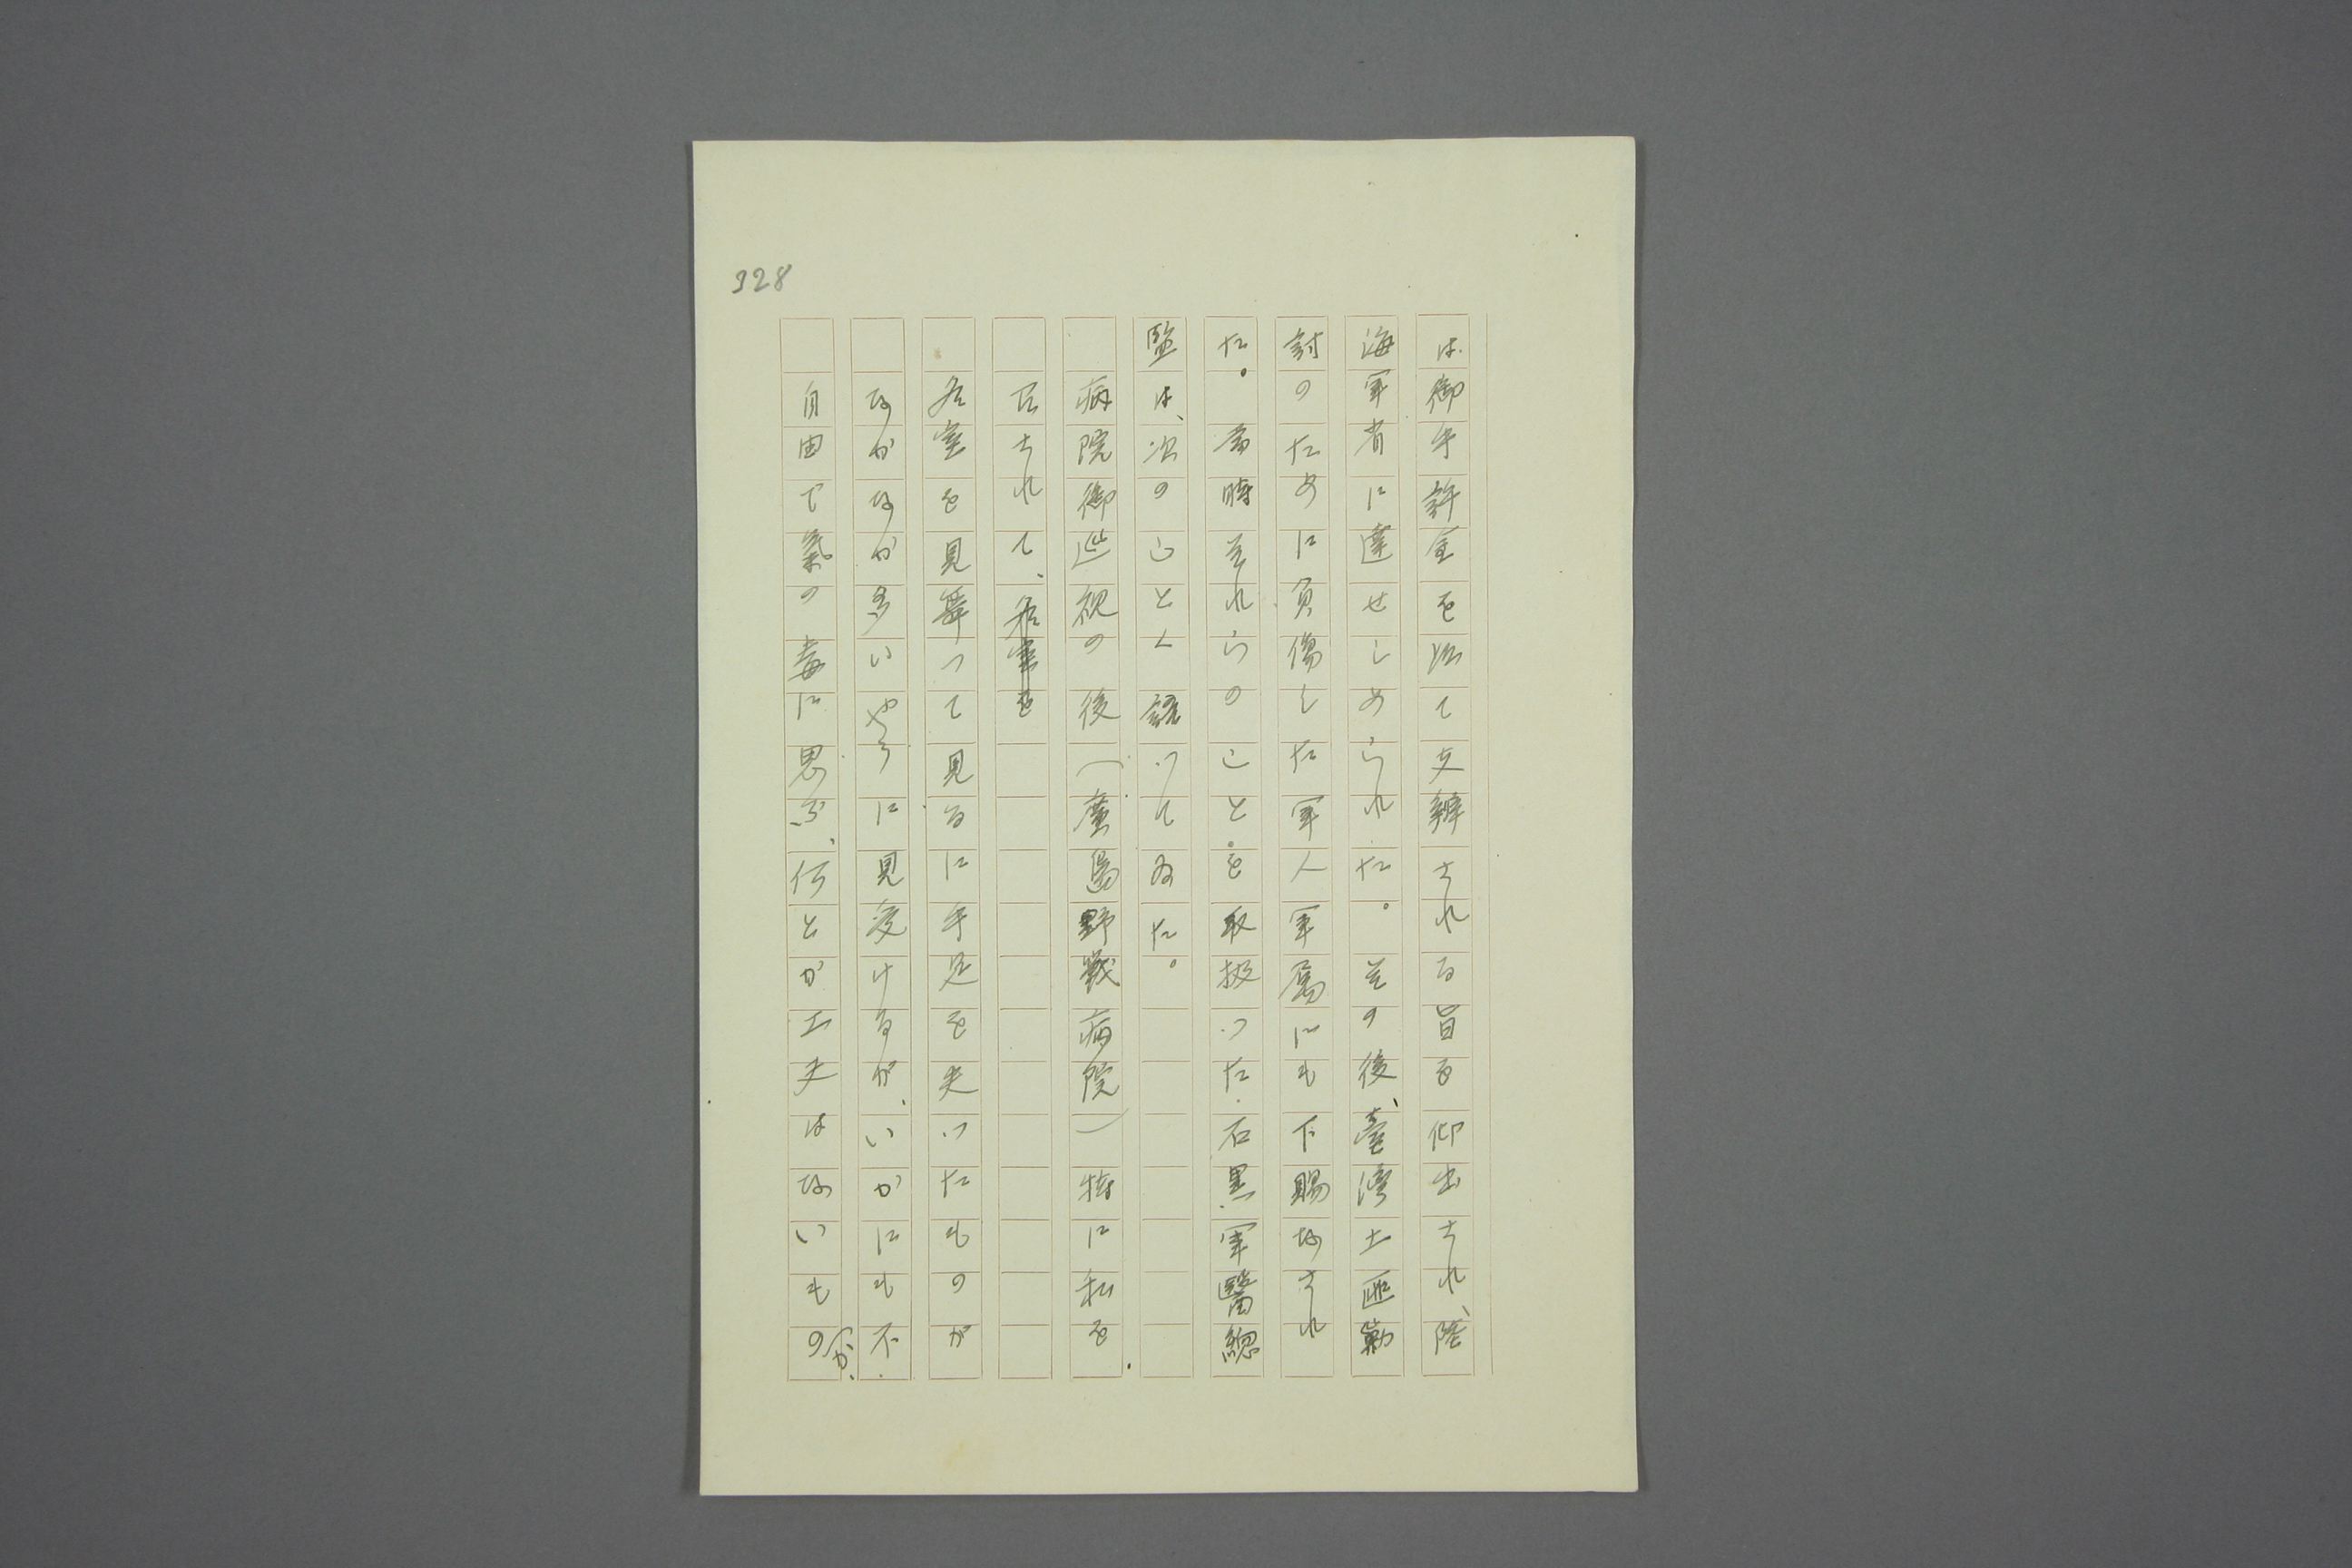 328
は御手許金を以て支辨される旨を仰出され、陸
海軍省に達せしめられた。その後、臺灣土匪勦
討のために負傷した軍人軍属にも下賜なされ
た。當時それらのことを取扱つた石黒軍醫總
監は、次のごとく語つてゐた。
病院御巡視の後（廣島野戰病院）特に私を
召されて、各室を
各室を見舞つて見るに手足を失つたものが
なかなか多いやうに見受けるが、いかにも不
自由で氣の毒に思ふ、何とか工夫はないものか